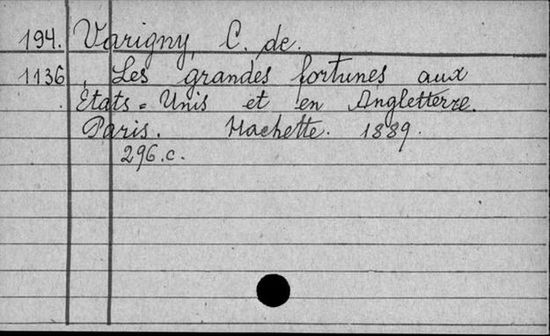 194. Varigny, C. de.
1136 Les grandes fortunes aux
États-Unis et en Angleterre.
Paris. Hachette. 1889.
296.c.